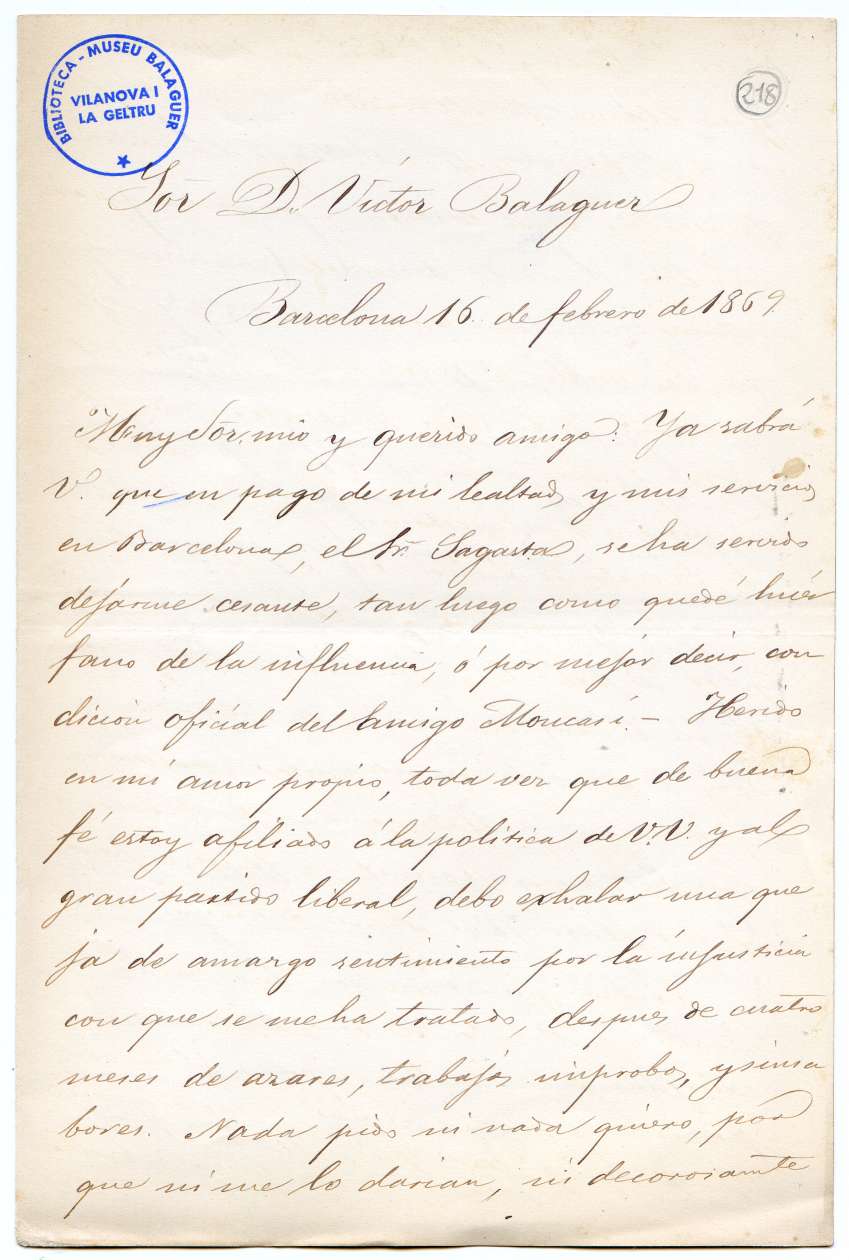 BIBLIOTECA - MUSEU BALAGUER
VILANOVA I
LA GELTRU
218
Sor. D. Víctor Balaguer
Barcelona 16 de febrero de 1869.
Muy Sor. mio y querido amigo: Ya sabrá
V. que en pago de mi lealtad y mis servicios
en Barcelona, el Sr. Sagasta, se ha servido
dejarme cesante, tan luego como quedé huér
fano de la influencia, ó por mejor decir, con
dicion oficial del amigo Moncasi. - Herido
en mi amor propio, toda vez que de buena
fé estoy afiliado á la politica de V.V. y al
gran partido liberal, debo exhalar una que
ja de amargo sentimiento por la injusticia
con que se me ha tratado, despues de cuatro
meses de azares, trabajos improbos, y sinsa
bores. Nada pido ni nada quiero, por
que ni me lo darian, ni decorosamte